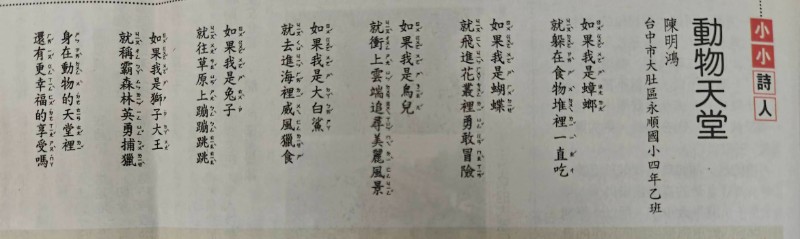 小小詩人
動物天堂
陳明鴻
台中市大肚區永順國小四年乙班
如果我是蟑螂
就躲在食物堆裡一直吃
如果我是蝴蝶
就飛進花叢裡勇敢冒險
如果我是鳥兒
就衝上雲端追尋美麗風景
如果我是大白鯊
就去進海裡威風獵食
如果我是兔子
就往草原上蹦蹦跳跳
如果我是獅子大王
就稱霸森林英勇捕獵
身在動物的天堂裡
還有更幸福的享受嗎